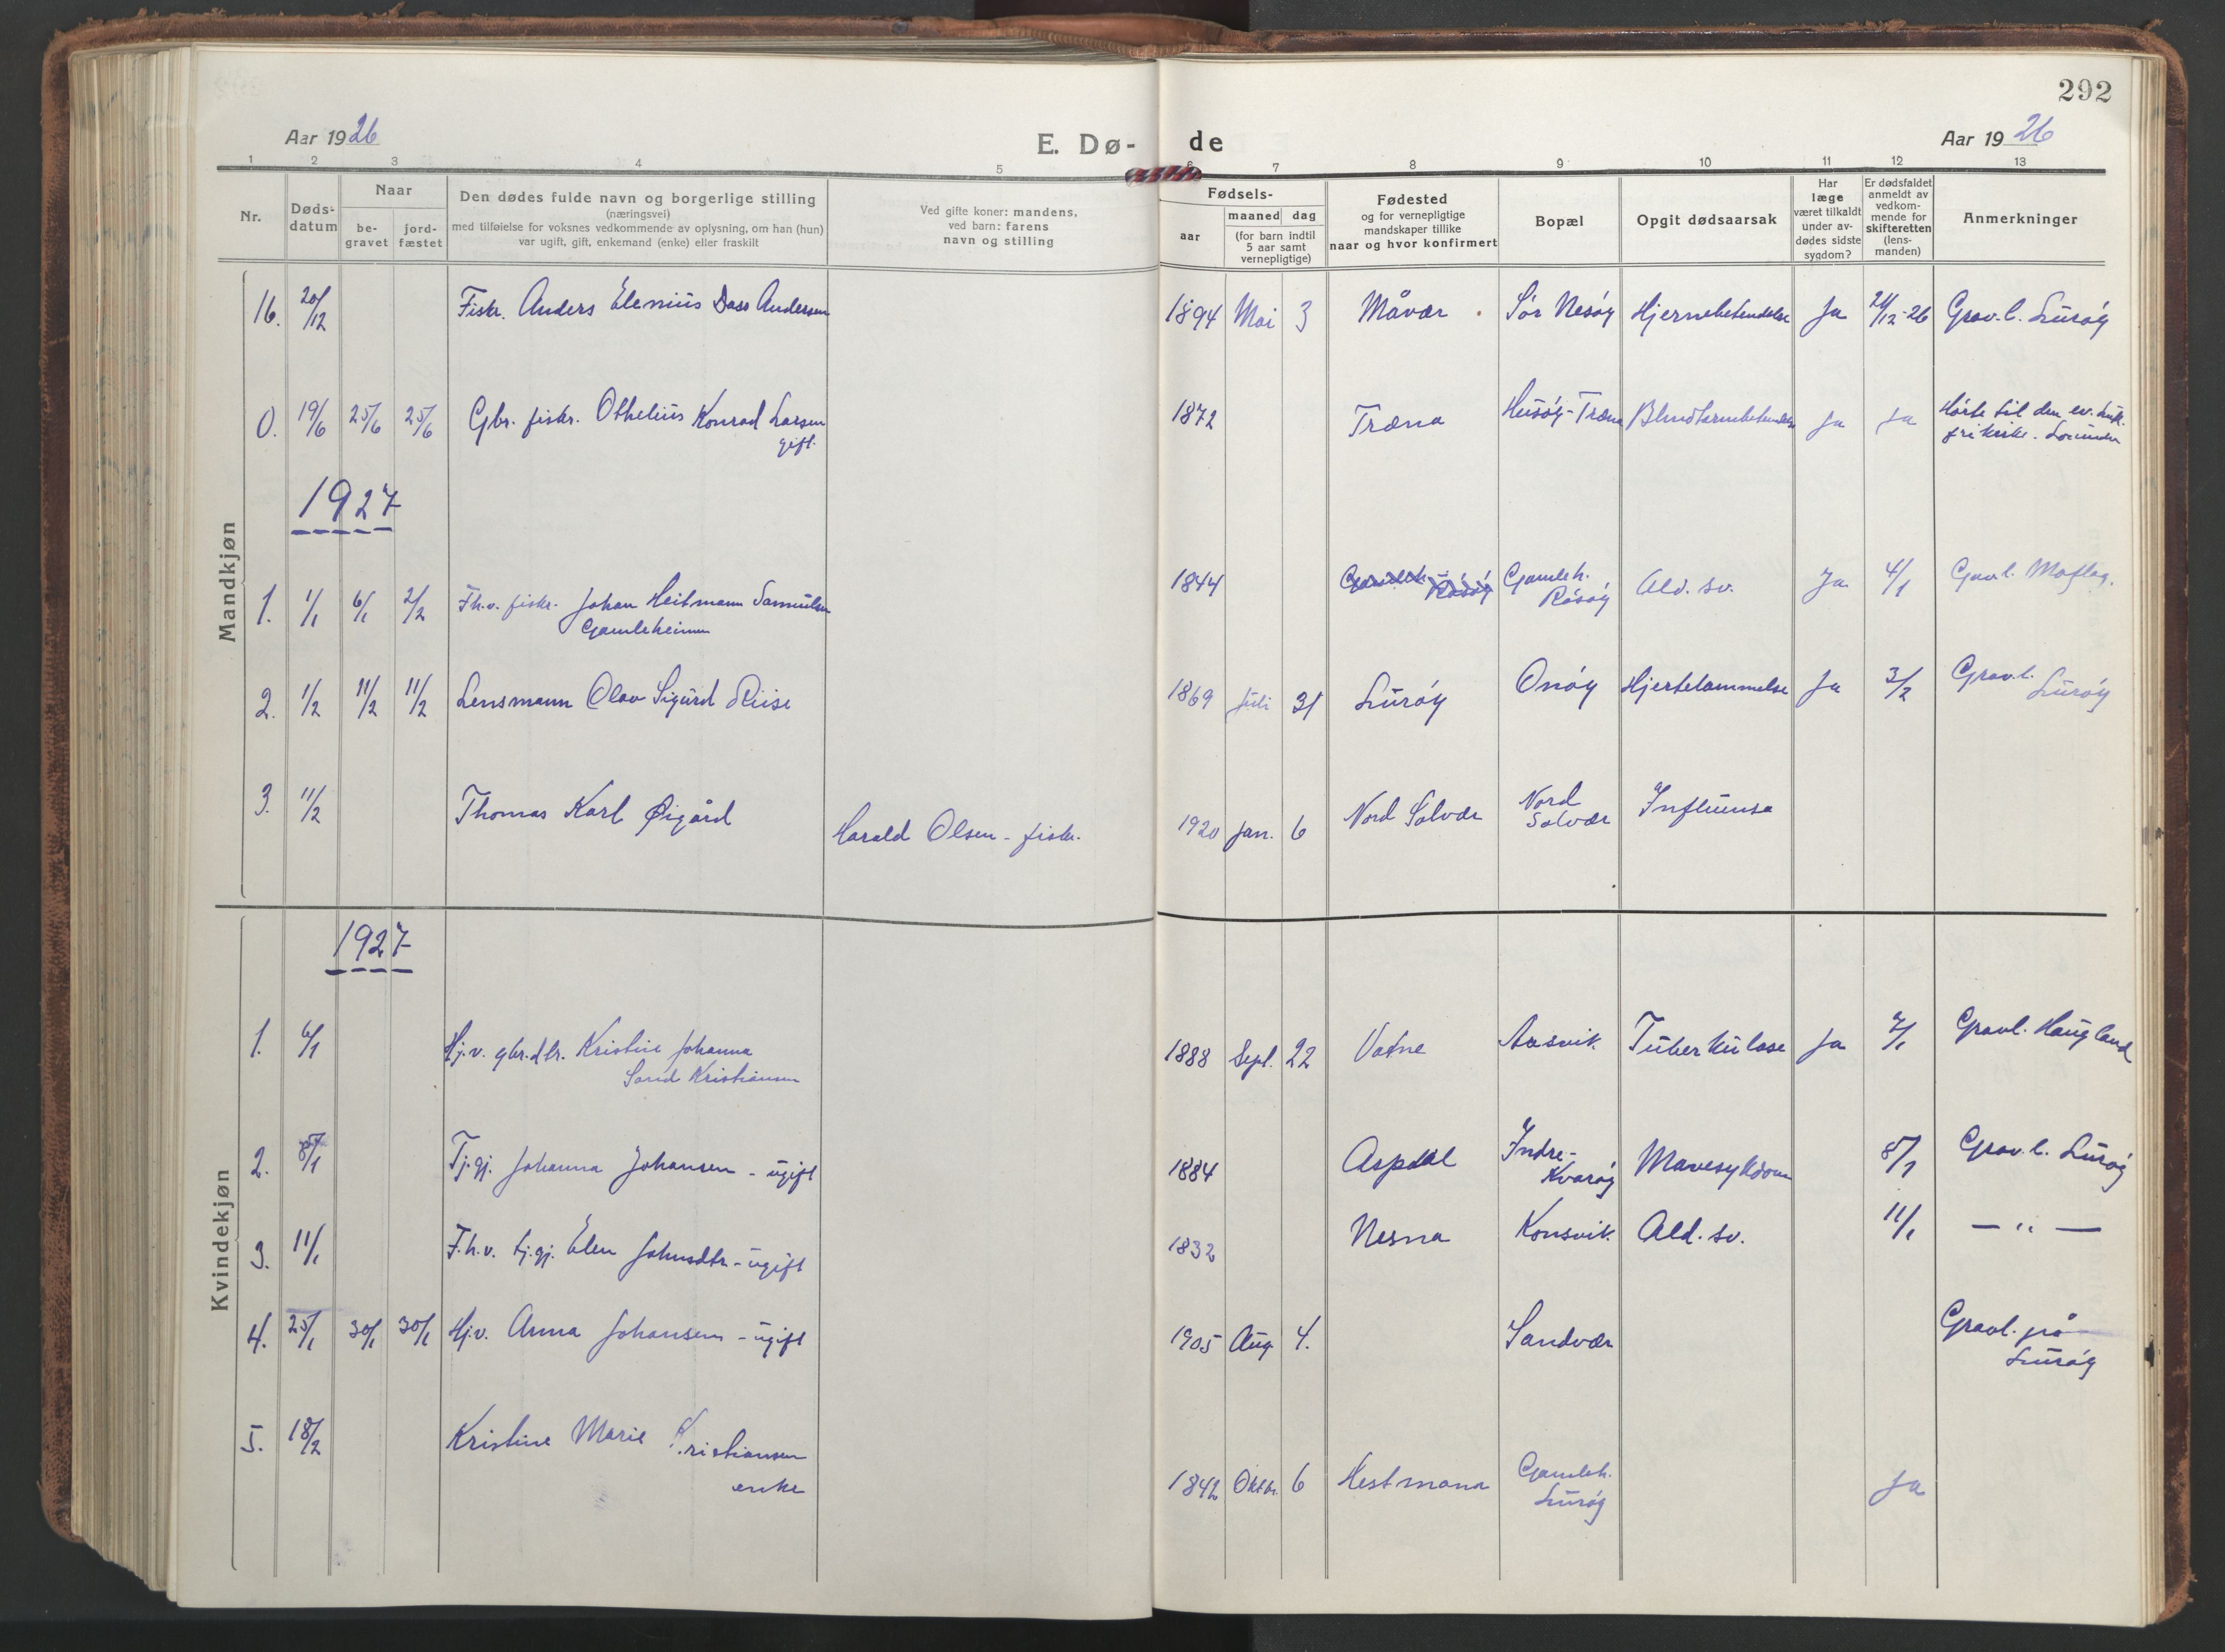 292
Aar 1926
E. Dø-
de
Aar 1926
1 2 3 4 5 6 7 8 9 10 11 12 13
Nr.
Døds-
datum
Naar
be-
gravet
jord-
fæstet
Den dødes fulde navn og borgerlige stilling
(næringsvei)
med tilføielse for voksnes vedkommende av oplysning, om han (hun)
var ugift, gift, enkemand (enke) eller fraskilt
Ved gifte koner: mandens,
ved barn: farens
navn og stilling
Fødsels-
aar
maaned dag
(for barn indtil
5 aar samt
vernepligtige)
Fødested
og for vernepligtige
mandskaper tillike
naar og hvor konfirmert
Bopæl
Opgit dødsaarsak
Har
læge
været tilkaldt
under av-
dødes sidste
sygdom?
Er dødsfaldet
anmeldt av
vedkom-
mende for
skifteretten
(lens-
manden)
Anmerkninger
Mandkjøn
16. 20/12 Fisk. Anders Elenius Dass Andersen 1894 Mai 3 Måvær Sør Nesøy Hjernebetendelse Ja 21/12-26 Grav.l. Lurøy
0. 19/6 25/6 25/6 Gbr. fiskr. Othelius Konrad Larsen 1872 Træna Husøy-Træna Blindtarmbetendelse Ja Ja Hørte til den ev. luth.
gift. frikirke. Lovunden
1927
1. 1/1 6/1 2/2 Fh.v. fiskr. Johan Heitmann Samuelsen 1844 Gamleh. Ald. sv. Ja 4/1 Gravl. Moflag.
Gamleheimen Råsøy
2. 1/2 11/2 11/2 Lensmann Olav Sigurd Riise 1869 Juli 31 Lurøy Onøy Hjertelammelse Ja 3/2 Grav.l.
Lurøy
3. 11/2 Thomas Karl Øigård Harald Olsen - fiskr. 1920 Jan. 6 Nord Solvær Nord Influensa
Solvær
Kvindekjøn
1927
1. 6/1 Hj.v. gbr.dtr. Kristine Johanna 1888 Sept. 22 Vatne Aasvik Tuberkulose Ja 7/1 Gravl. Haugland
Sand Kristiansen
2. 8/1 Tj.gj. Johanna Johansen - ugift 1884 Aspdal Indre- Mavesykdom 8/1 Grav.l. Lurøy
Kvarøy
3. 11/1 F.h.v. tj.gj. Elen Johnsdtr - ugift 1832 Nesna Konsvik Ald. sv. 11/1 — " —
4. 25/1 30/1 30/1 Hj.v. Anna Johansen - ugift 1905 Aug 4. Sandvær Gravl. på
Lurøy
5. 18/2 Kristine Marie Kristiansen
enke 1842 Oktbr. 6 Hestmana Gamleh. Ja
Lurøy